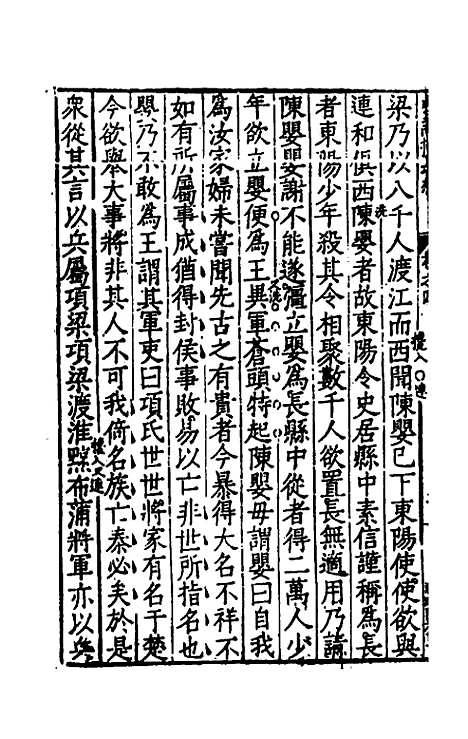 梁乃以八千人渡江而西聞陳嬰已下東陽使使欲與
連和俱西陳嬰者故東陽令史居縣中素信謹稱爲長
者東陽少年殺其令相聚數千人欲置長無適用乃請
陳嬰嬰謝不能遂彊立嬰爲長縣中從者得二萬人少
年欲立嬰便爲王異軍蒼頭特起陳嬰母謂嬰曰自我
爲汝家婦未嘗聞先古之有貴者今暴得大名不祥不
如有所屬事成猶得封侯事敗易以亡非世所指名也
嬰乃不敢爲王謂其軍吏曰項氏世世將家有名于楚
今欲舉大事將非其人不可我倚名族亡秦必矣於是
衆從其言以兵屬項梁項梁渡淮黥布蒲將軍亦以兵